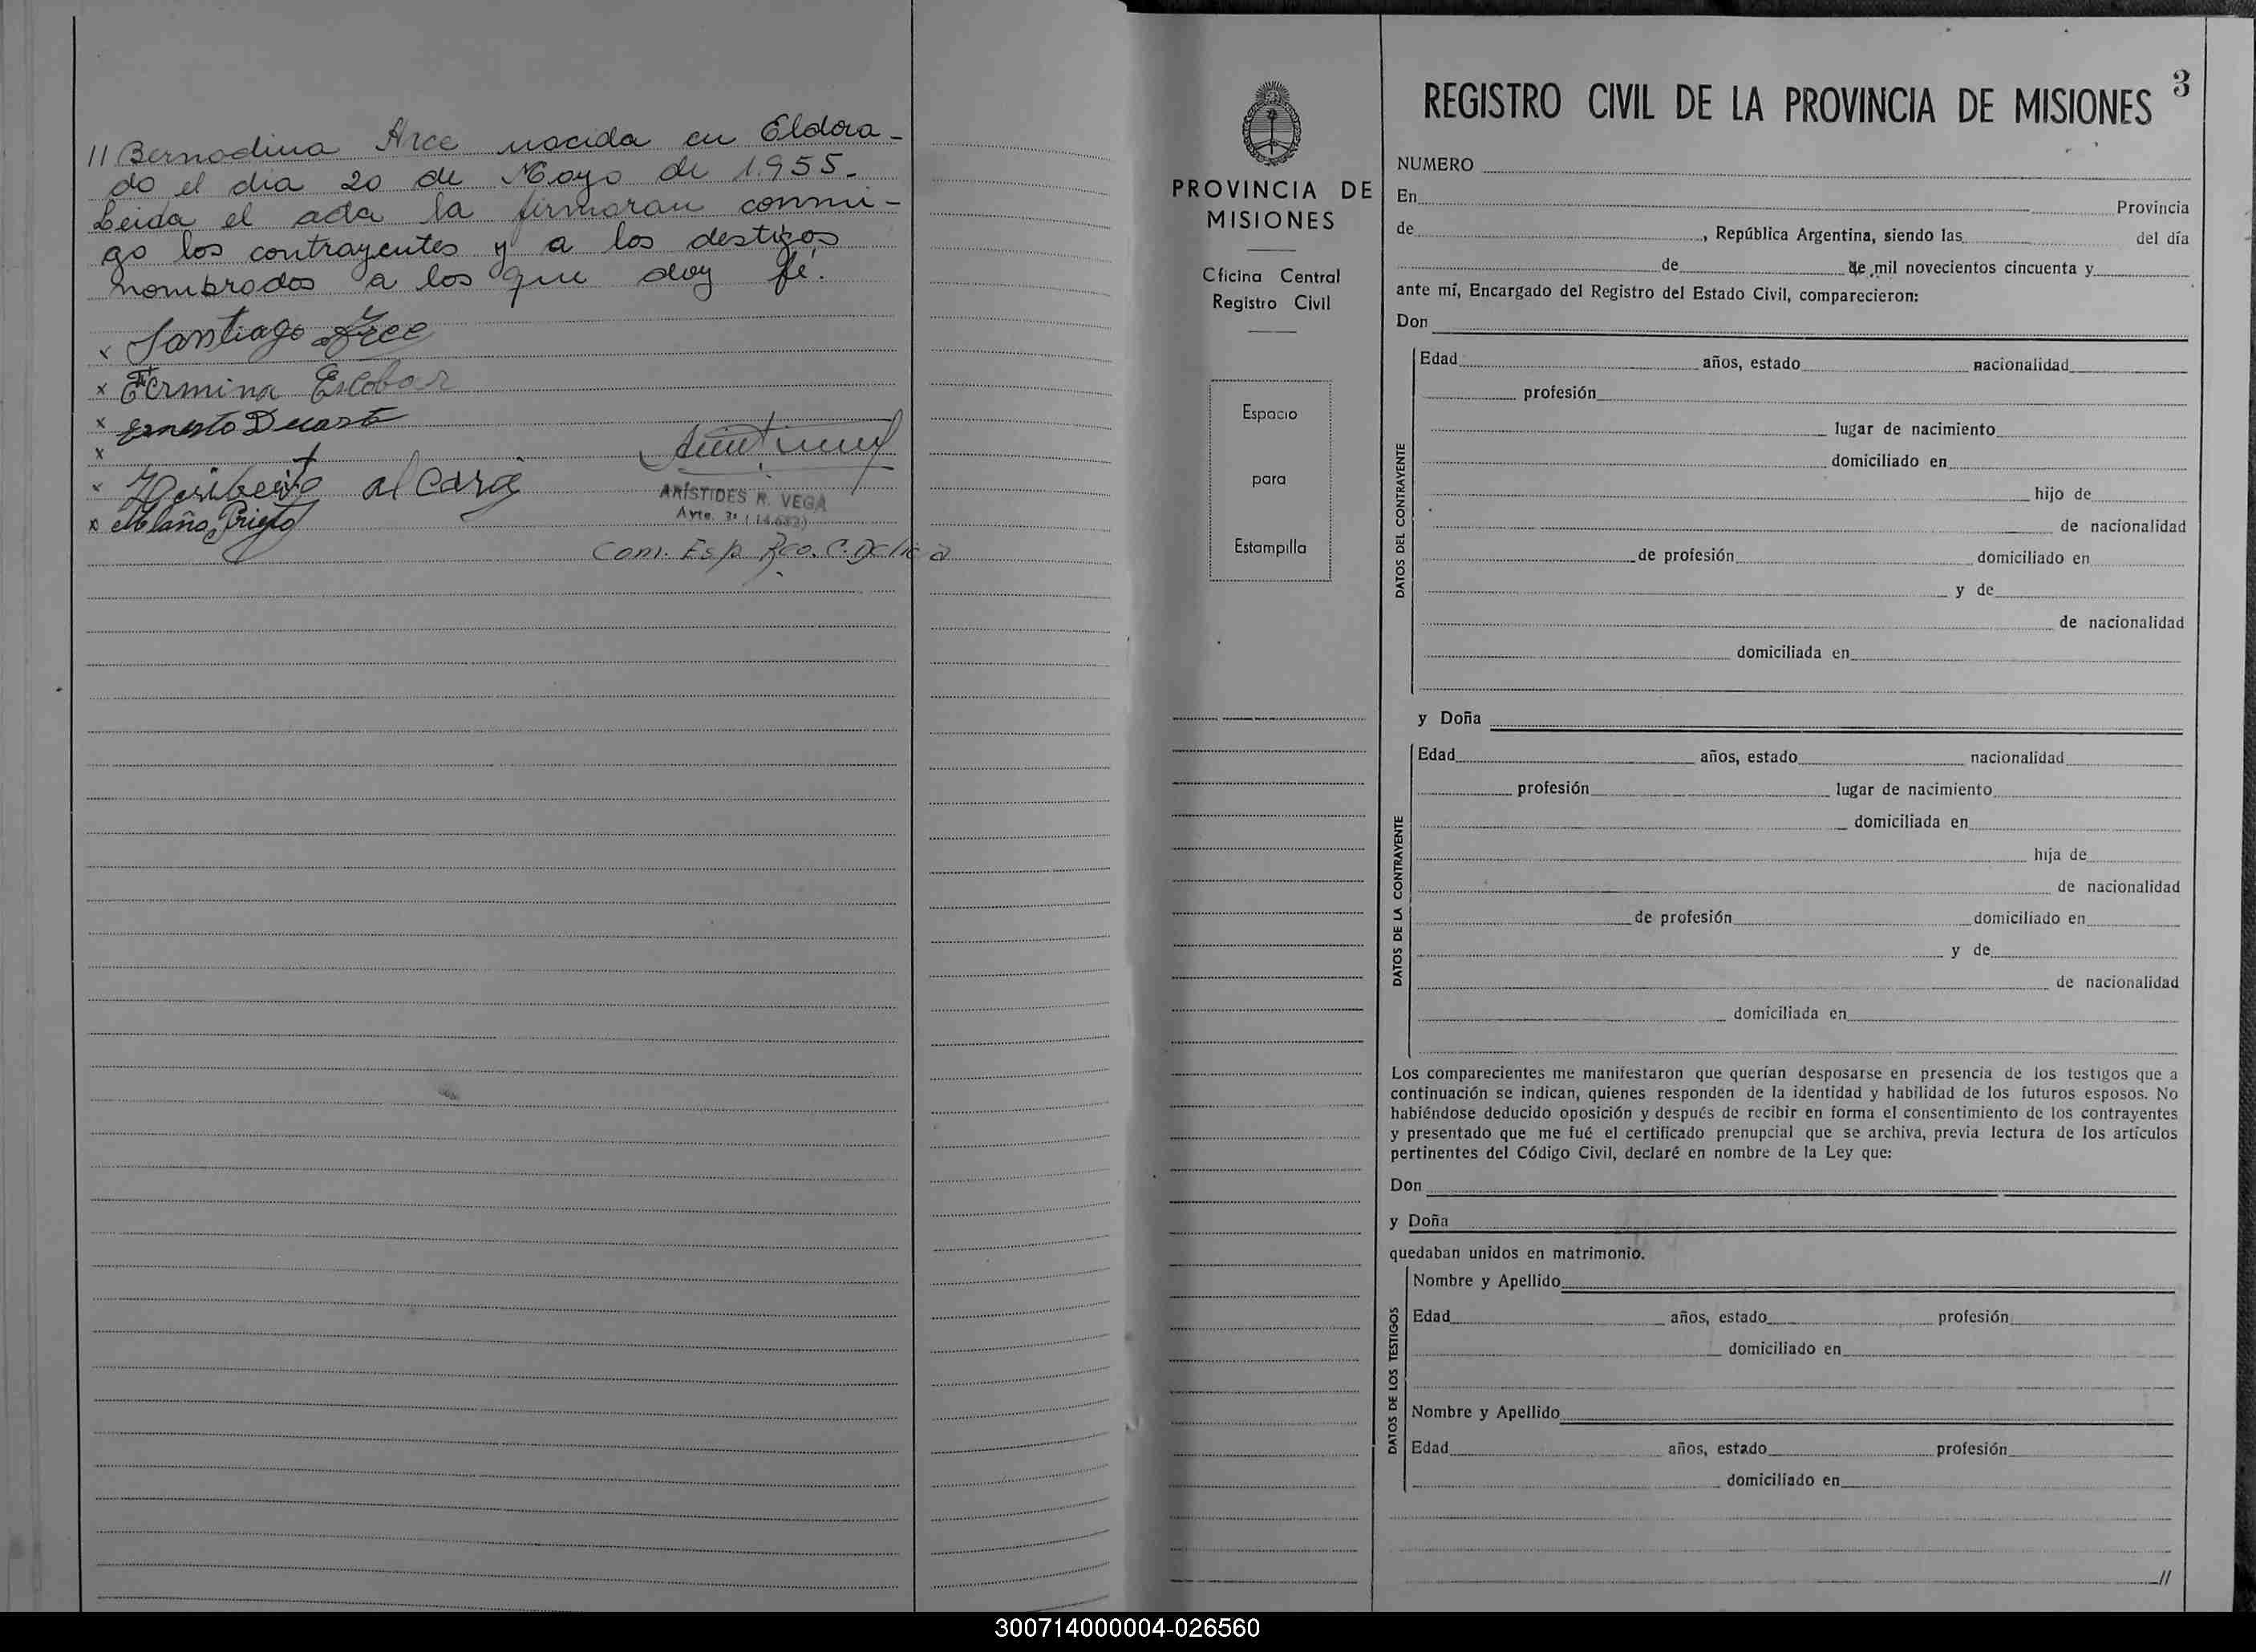 // Bernodina Arce nacida en Eldora-
do el dia 20 de Mayo de 1.955.
Leida el acta la firmaran conmi-
go los contrayentes y a los destigos
nombrados a los que doy fé.
x Santiago Arce
x Fermina Escobar
x Ernesto Duarte
x
x Heriberto alcara
x Prieto
ARÍSTIDES R. VEGA
Ayte. 3ª (14.682)
Com. Esp. Rco. C. Delicia
PROVINCIA DE
MISIONES
Oficina Central
Registro Civil
Espacio
para
Estampilla
3
REGISTRO CIVIL DE LA PROVINCIA DE MISIONES
NUMERO
En Provincia
de , República Argentina, siendo las del día
de de mil novecientos cincuenta y
ante mí, Encargado del Registro del Estado Civil, comparecieron:
Don
DATOS DEL CONTRAYENTE
Edad años, estado nacionalidad
profesión
lugar de nacimiento
domiciliado en
hijo de
de nacionalidad
de profesión domiciliado en
y de
de nacionalidad
domiciliada en
y Doña
DATOS DE LA CONTRAYENTE
Edad años, estado nacionalidad
profesión lugar de nacimiento
domiciliada en
hija de
de nacionalidad
de profesión domiciliado en
y de
de nacionalidad
domiciliada en
Los comparecientes me manifestaron que querían desposarse en presencia de los testigos que a
continuación se indican, quienes responden de la identidad y habilidad de los futuros esposos. No
habiéndose deducido oposición y después de recibir en forma el consentimiento de los contrayentes
y presentado que me fué el certificado prenupcial que se archiva, previa lectura de los artículos
pertinentes del Código Civil, declaré en nombre de la Ley que:
Don
y Doña
quedaban unidos en matrimonio.
DATOS DE LOS TESTIGOS
Nombre y Apellido
Edad años, estado profesión
domiciliado en
Nombre y Apellido
Edad años, estado profesión
domiciliado en
//
300714000004-026560